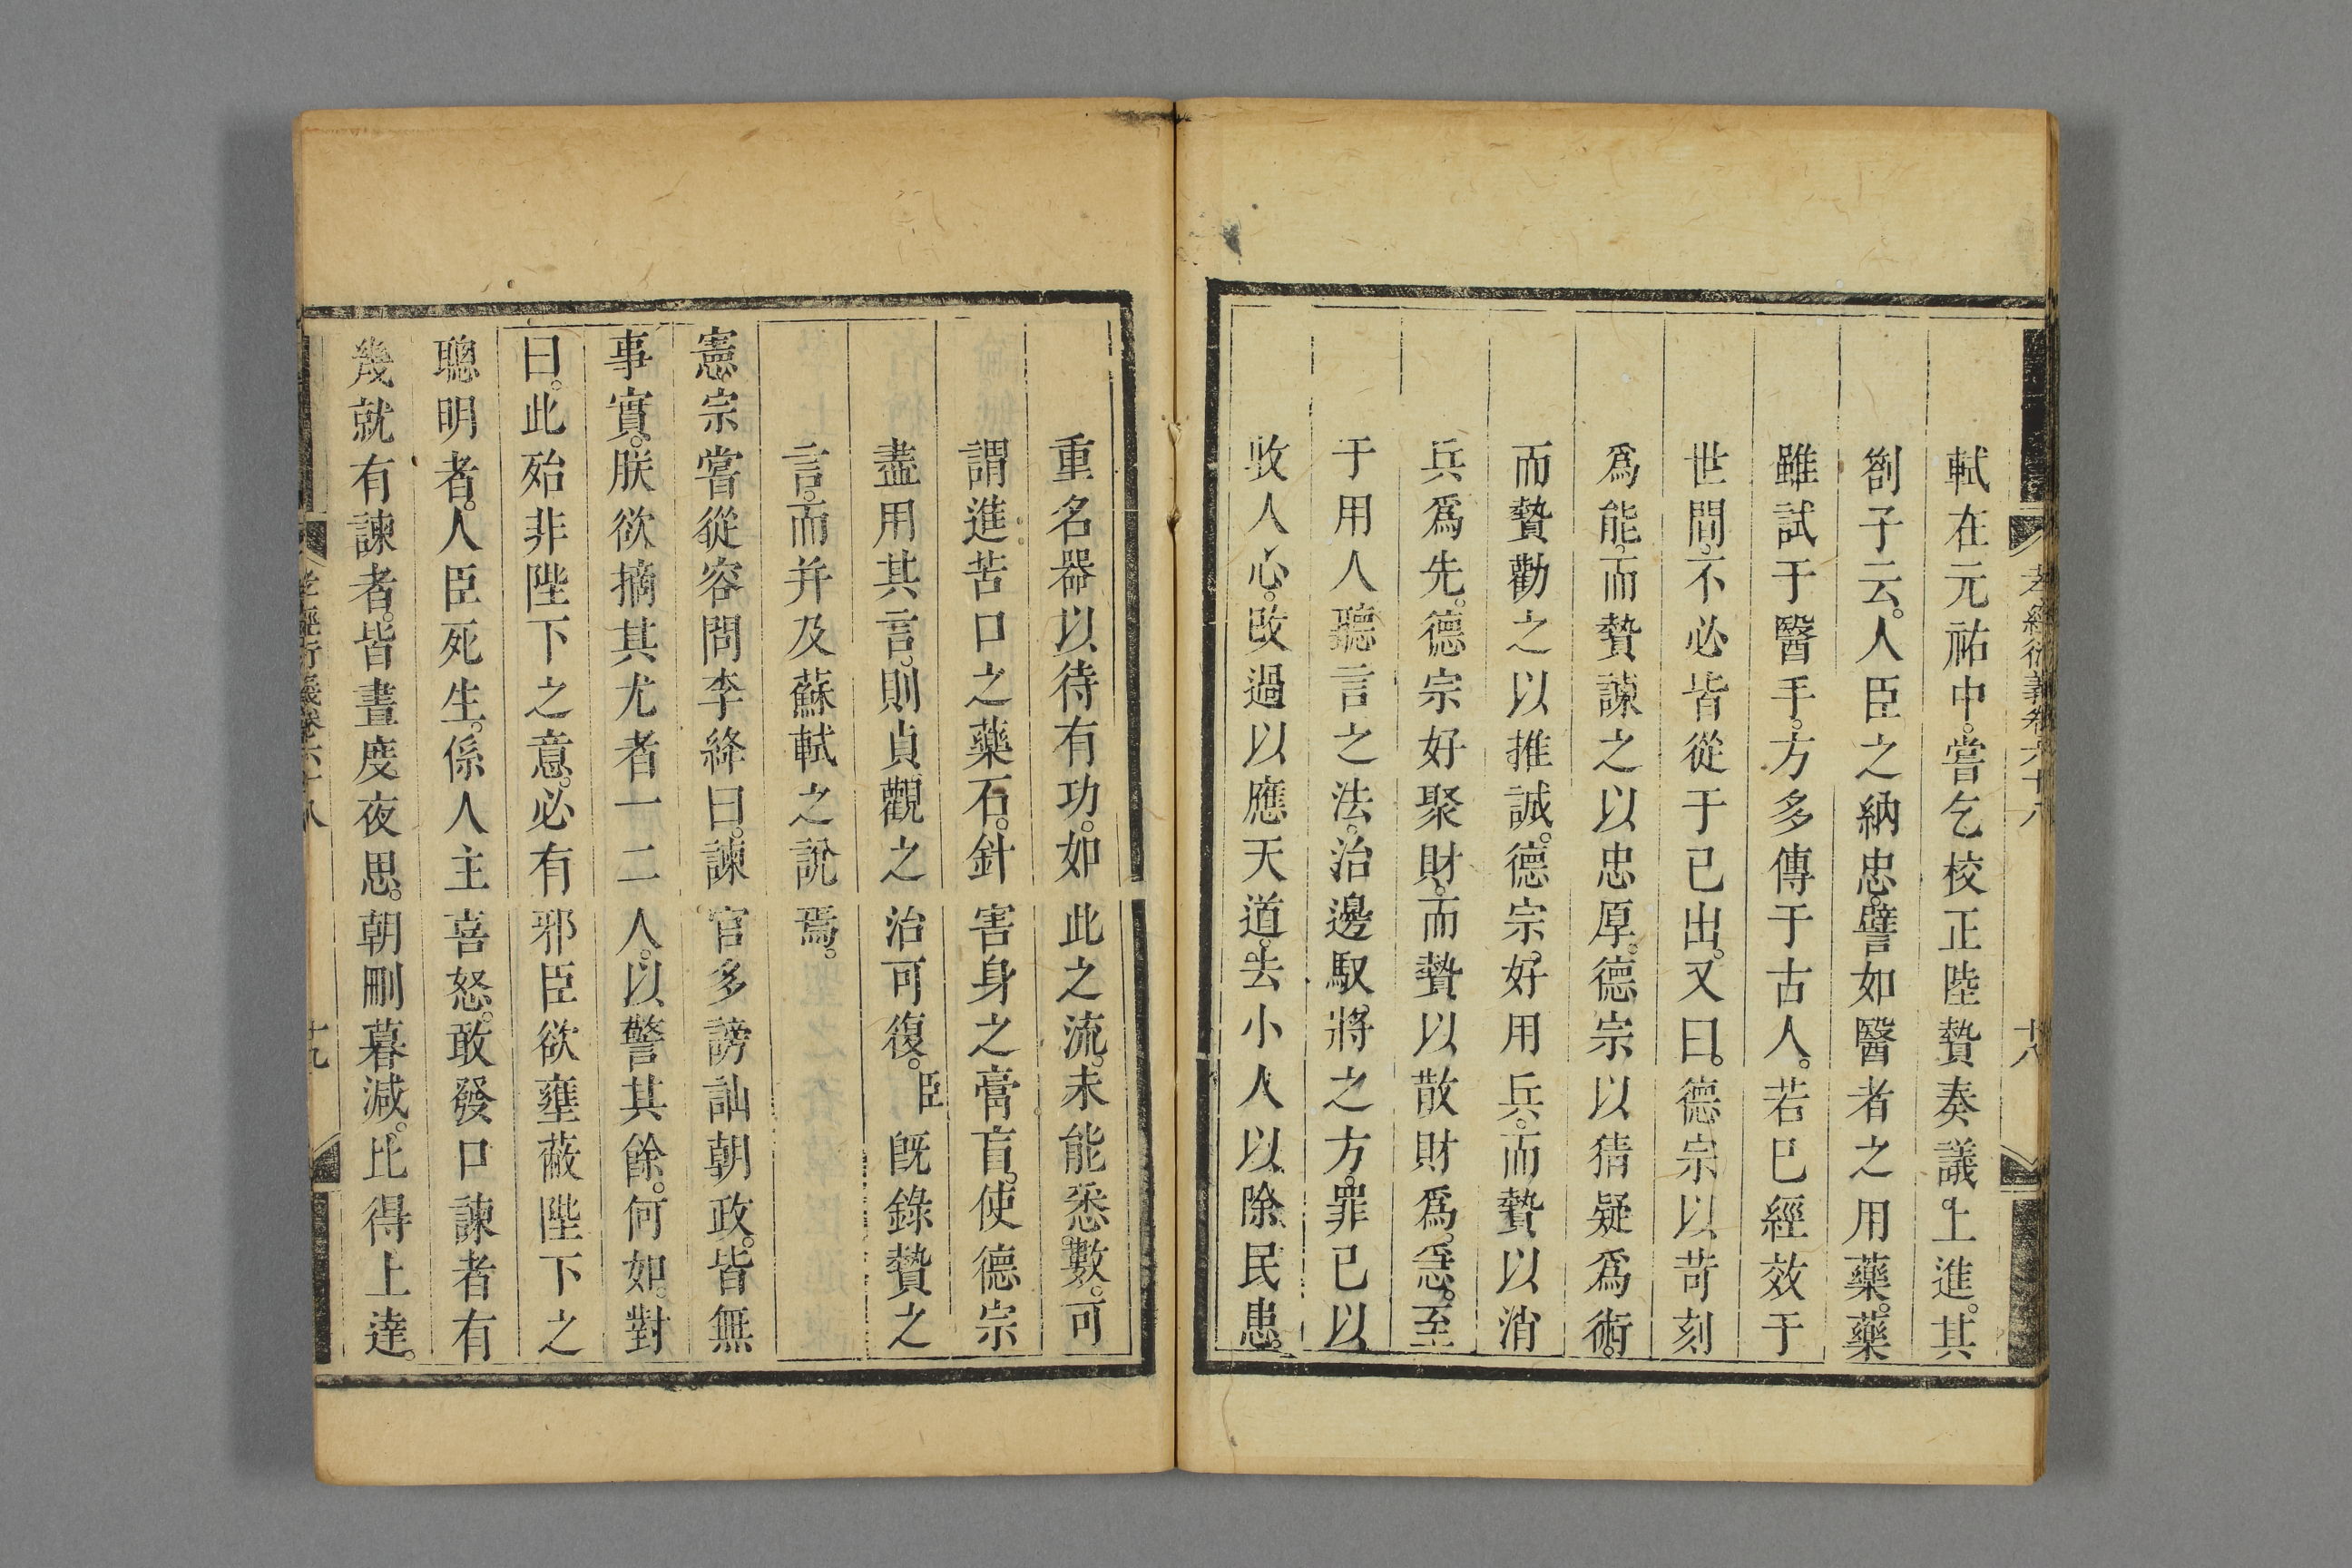 孝經衍義卷六十八　十八
軾在元祐中。嘗乞校正陸贄奏議。上進。其
劄子云。人臣之納忠。譬如醫者之用藥。藥
雖試于醫手。方多傳于古人。若已經效于
世間。不必皆從于己出。又曰。德宗以苛刻
爲能。而贄諫之以忠厚。德宗以猜疑爲術。
而贄勸之以推誠。德宗好用兵。而贄以消
兵爲先。德宗好聚財。而贄以散財爲急。至
于用人聽言之法。治邊馭將之方。罪己以
收人心。改過以應天道。去小人以除民患。
重名器以待有功。如此之流。未能悉數。可
謂進苦口之藥石。針害身之膏肓。使德宗
盡用其言。則貞觀之治可復。臣既錄贄之
言。而并及蘇軾之說焉。
憲宗嘗從容問李絳曰。諫官多謗訕朝政。皆無
事實。朕欲摘其尤者一二人。以警其餘。何如。對
曰。此殆非陛下之意。必有邪臣欲壅蔽陛下之
聰明者。人臣死生。係人主喜怒。敢發口諫者有
幾就有諫者。皆晝度夜思。朝刪暮減。比得上達。
孝經衍義卷六十八　十九